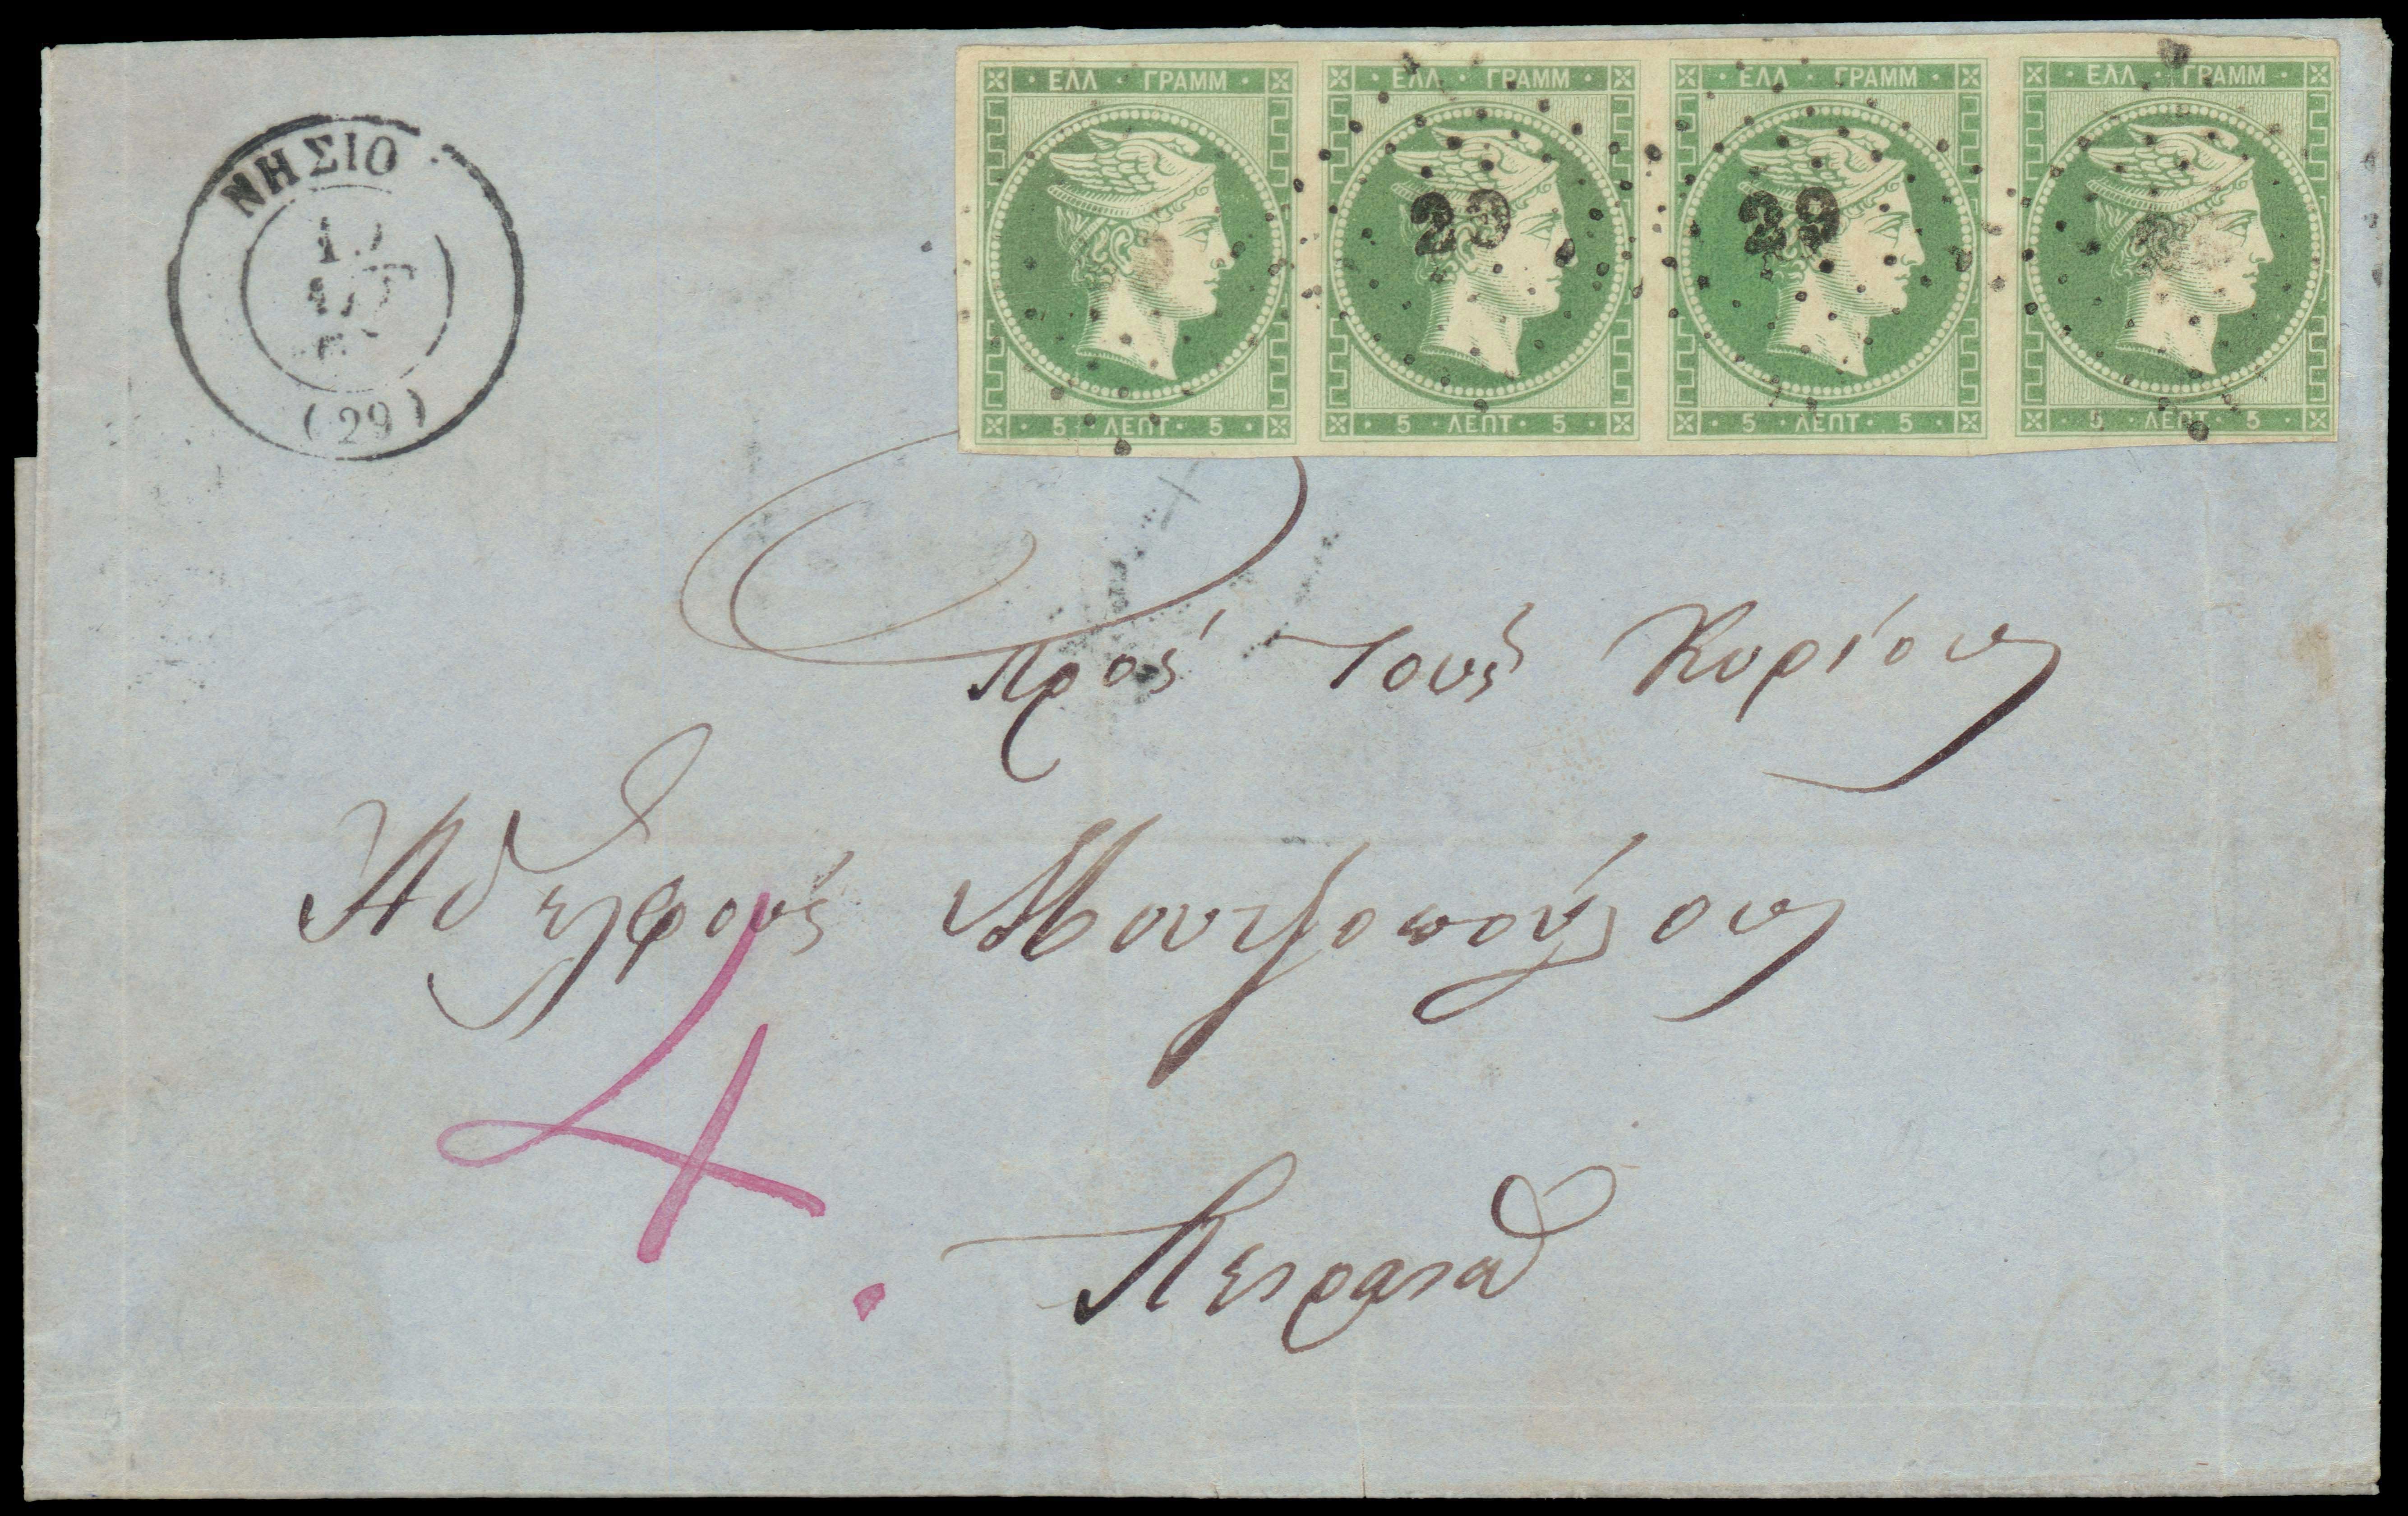 ΝΗΣΙΟ
(29)
ΕΛΛ · ΓΡΑΜΜ · ΕΛΛ · ΓΡΑΜΜ · ΕΛΛ · ΓΡΑΜΜ · ΕΛΛ · ΓΡΑΜΜ
29 29
5 · ΛΕΠΤ · 5 5 · ΛΕΠΤ · 5 5 · ΛΕΠΤ · 5 5 · ΛΕΠΤ · 5
Πρός τους Κυρίους
Αδελφούς
4.
Πειραιά